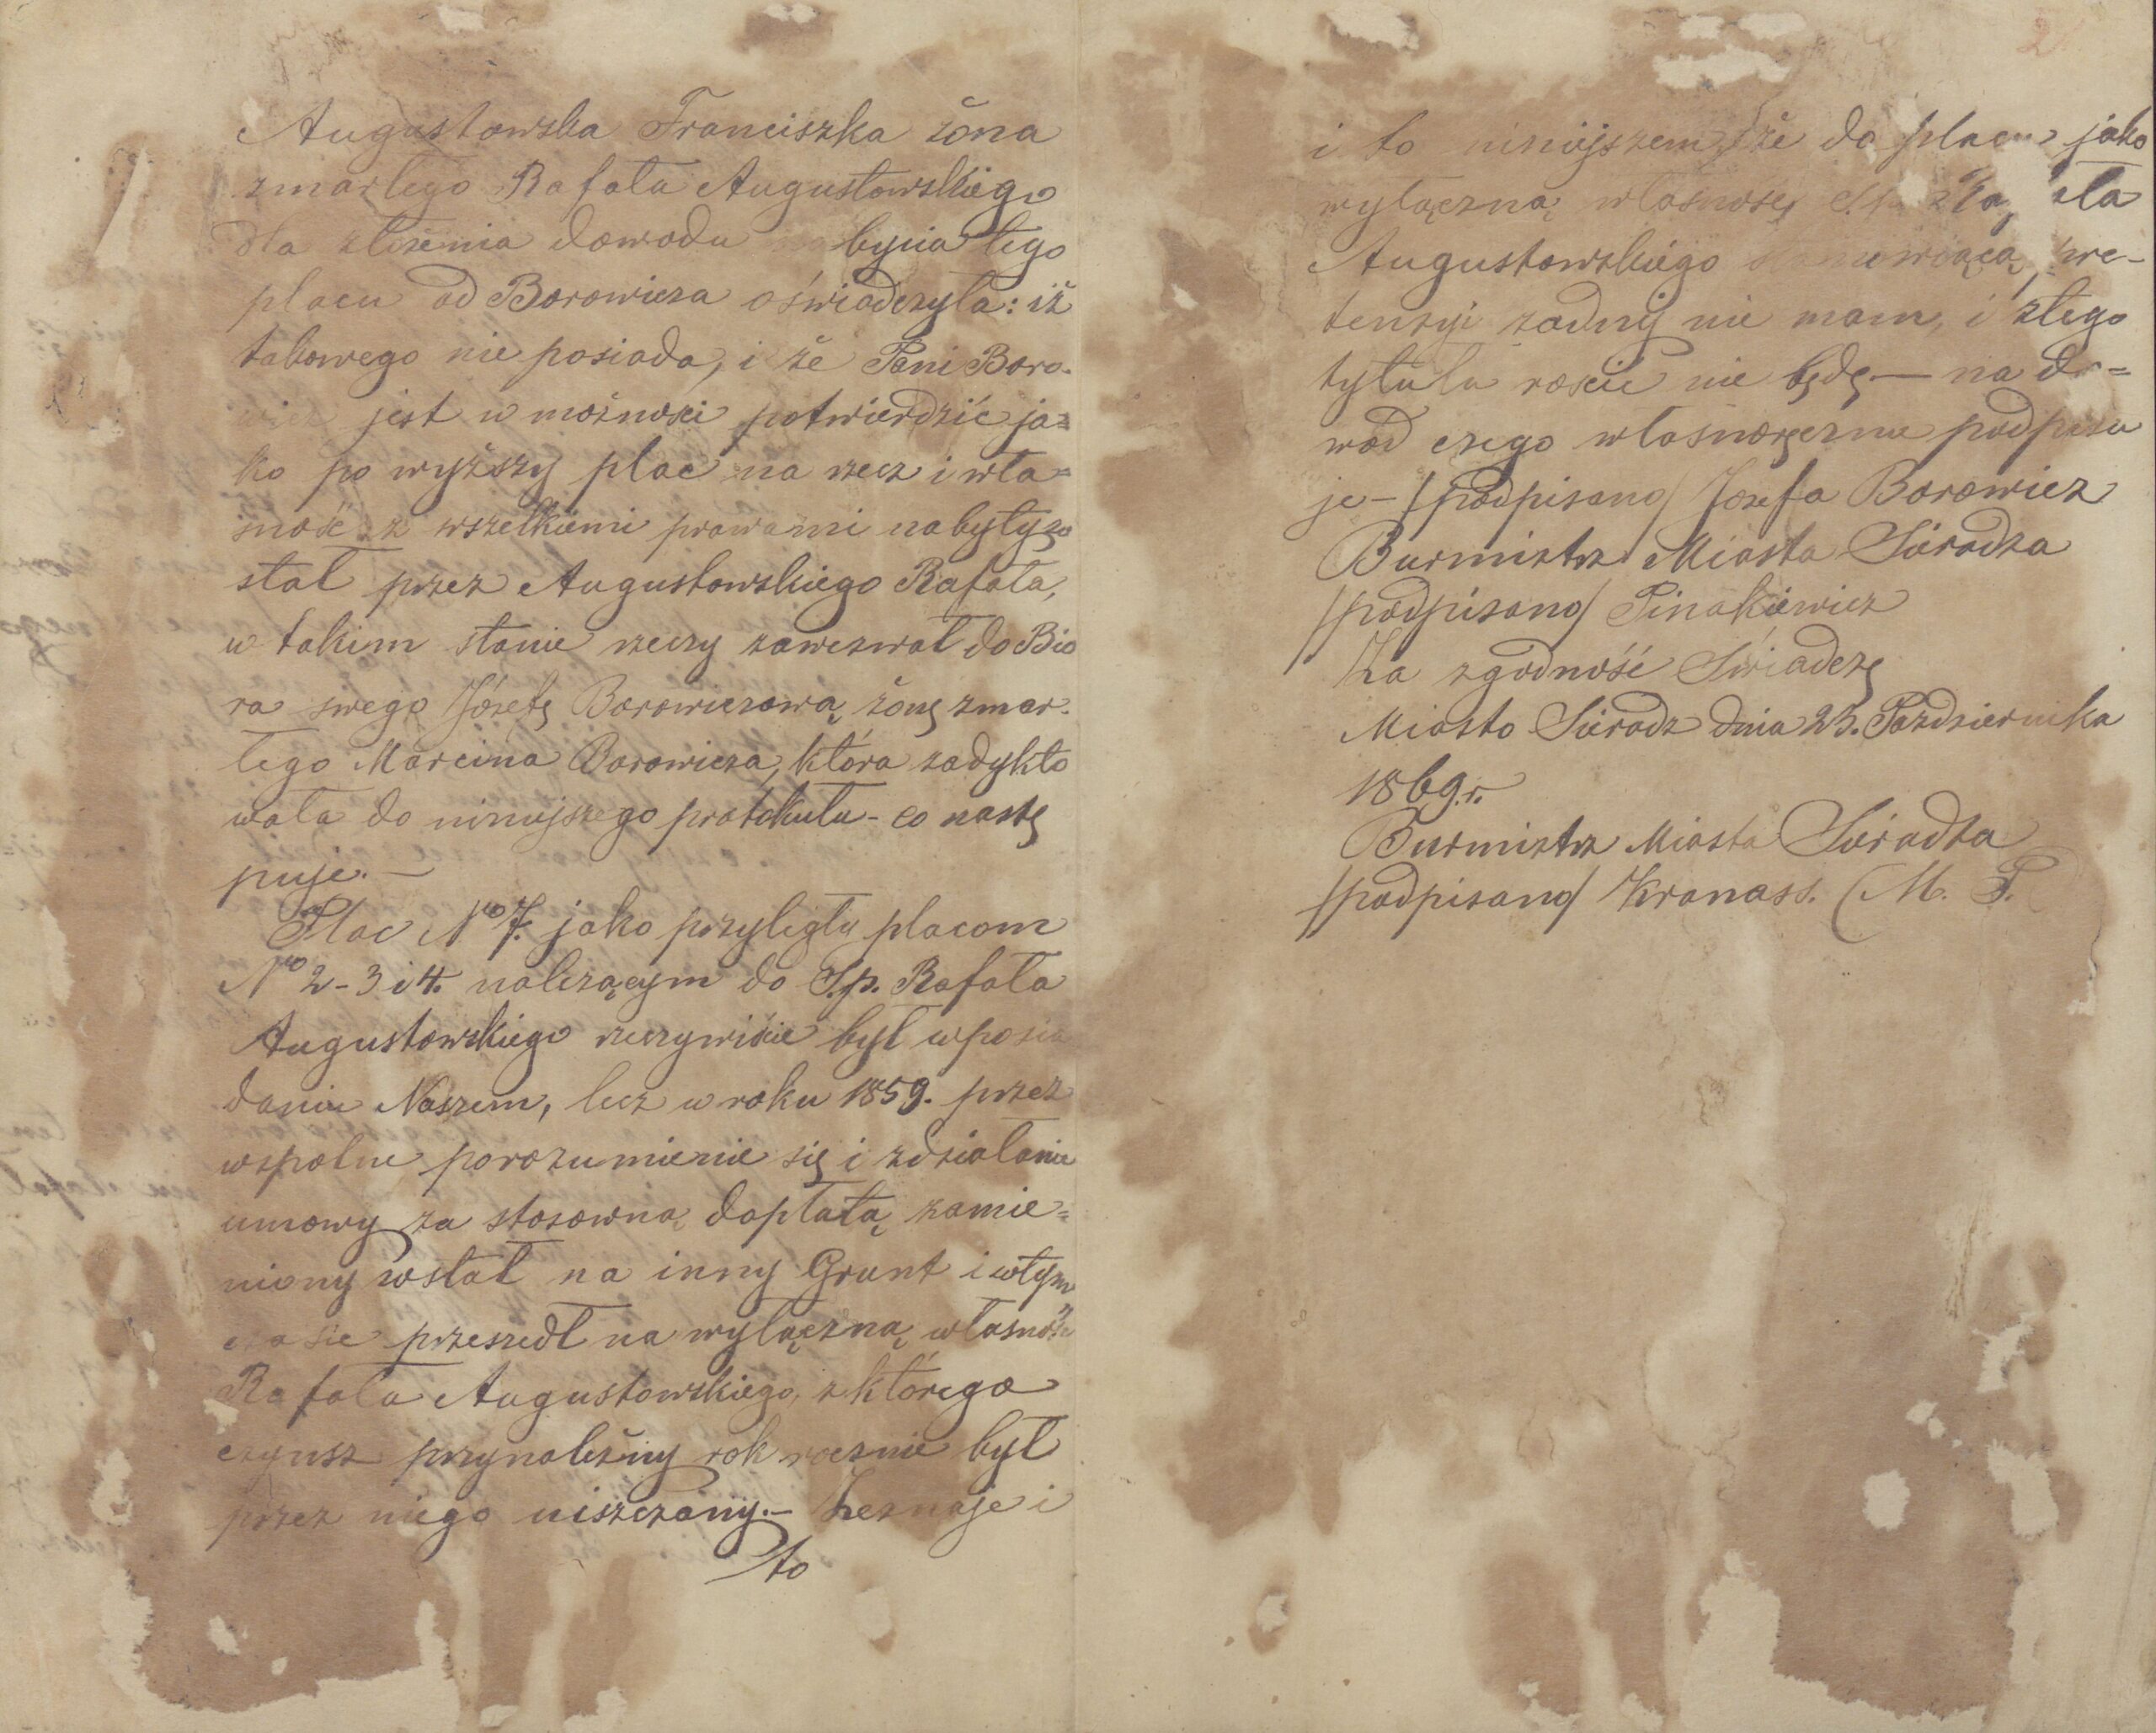 Augustowska Franciszka żona
zmarłego Rafała Augustowskiego
dla złożenia dowodu nabycia tego
placu od Borowicza oświadczyła: iż
takowego nie posiada, i że Pani Boro-
wicz jest w możności potwierdzić ja=
ko powyższy plac na rzecz i wła=
sność z wszelkiemi prawami nabyty zo
stał przez Augustowskiego Rafała,
w takim stanie rzeczy zawezwał do Bió
ra swego Józefę Borowiczową żonę zmar-
łego Marcina Borowicza, która zadykto
wała do niniejszego protokułu - co nastę
puje. —
Plac No 7. jako przyległy placom
No 2-3 i 4. należącym do S.p. Rafała
Augustowskiego rzeczywiście był w posia
daniu Naszem, lecz w roku 1859. przez
wspólne porozumienie się i zdziałanie
umowy za stosowną dopłatą zamie=
niony wstał na inny Grunt i w tym
czasie przeszedł na wyłączną własność
Rafała Augustowskiego, z którego
czynsz przynależny rok rocznie był
przez niego uiszczany. — Zeznaje i
to
2
i to niniejszem, że do placu jako
wyłączną własność S.p.
Augustowskiego pre-
tensyi żadnej nie mam, i z tego
tytułu rościć nie będę — na do=
wód czego własnoręcznie podpisu
je - /podpisano/ Józefa Borowicz
Burmistrz Miasta Sieradza
/podpisano/ Pinakiewicz
Za zgodność Świadczę
Miasto Sieradz dnia 23. Października
1869 r.
Burmistrz Miasta Sieradza
/podpisano/ Kranass. (M. P.